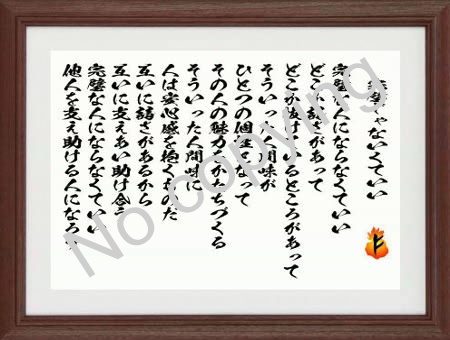 完璧じゃないくていい
完璧な人にならなくていい
どこか脆さがあって
どこか抜けているところがあって
そういった人間味が
ひとつの個性となって
その人の魅力をかたちづくる
そういった人間味に
人は安心感を抱くものだ
互いに脆さがあるから
互いに支えあい助け合う
完璧な人にならなくていい
他人を支え助ける人になろう
No copying